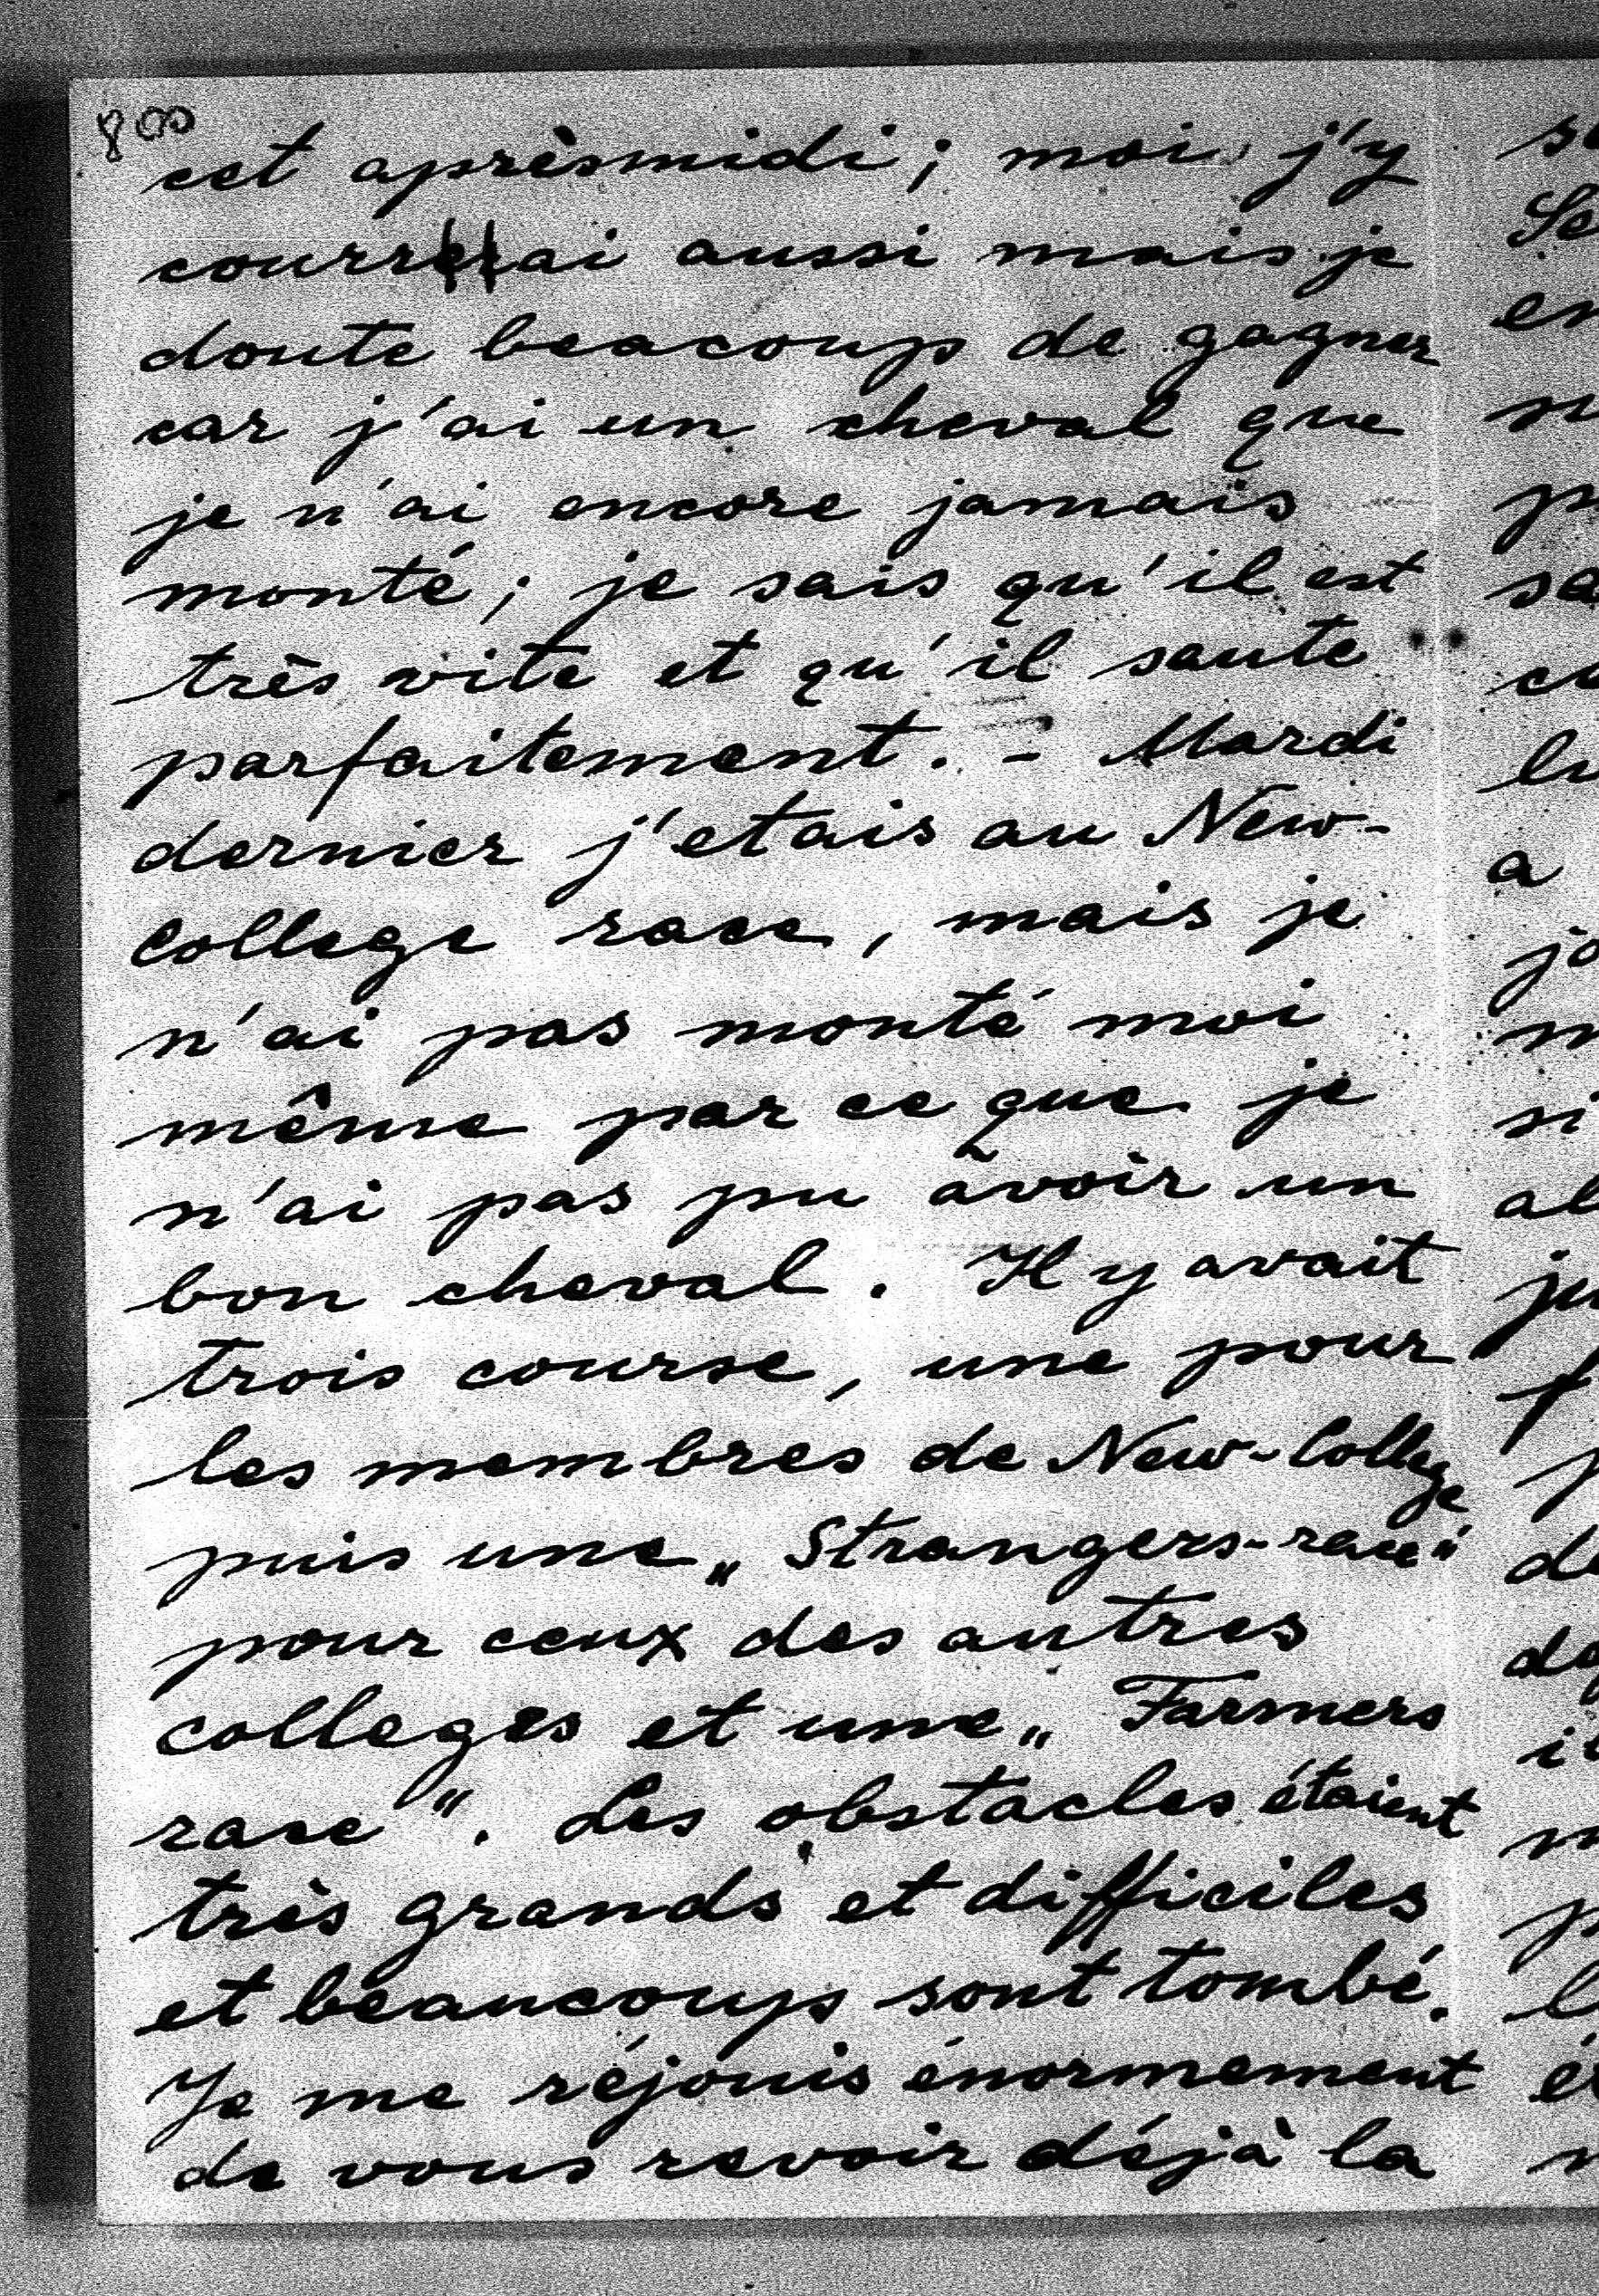 800
cet aprèsmidi; moi j'y
courrai aussi mais je
doute beacoup de gagner
car j'ai un cheval que
je n'ai encore jamais
monté; je sais qu'il est
très vite et qu'il saute
parfaitement. - Mardi
dernier j'etais au New-
College race, mais je
n'ai pas monté moi
même par ce que je
n'ai pas pu avoir un
bon cheval. Il y avait
trois course, une pour
les membres de New-College
puis une „Strangers-race"
pour ceux des autres
colleges et une „Farmers
race". Les obstacles étaient
très grands et difficiles
et beaucoup sont tombé.
Je me réjouis énormement
de vous revoir déjà la